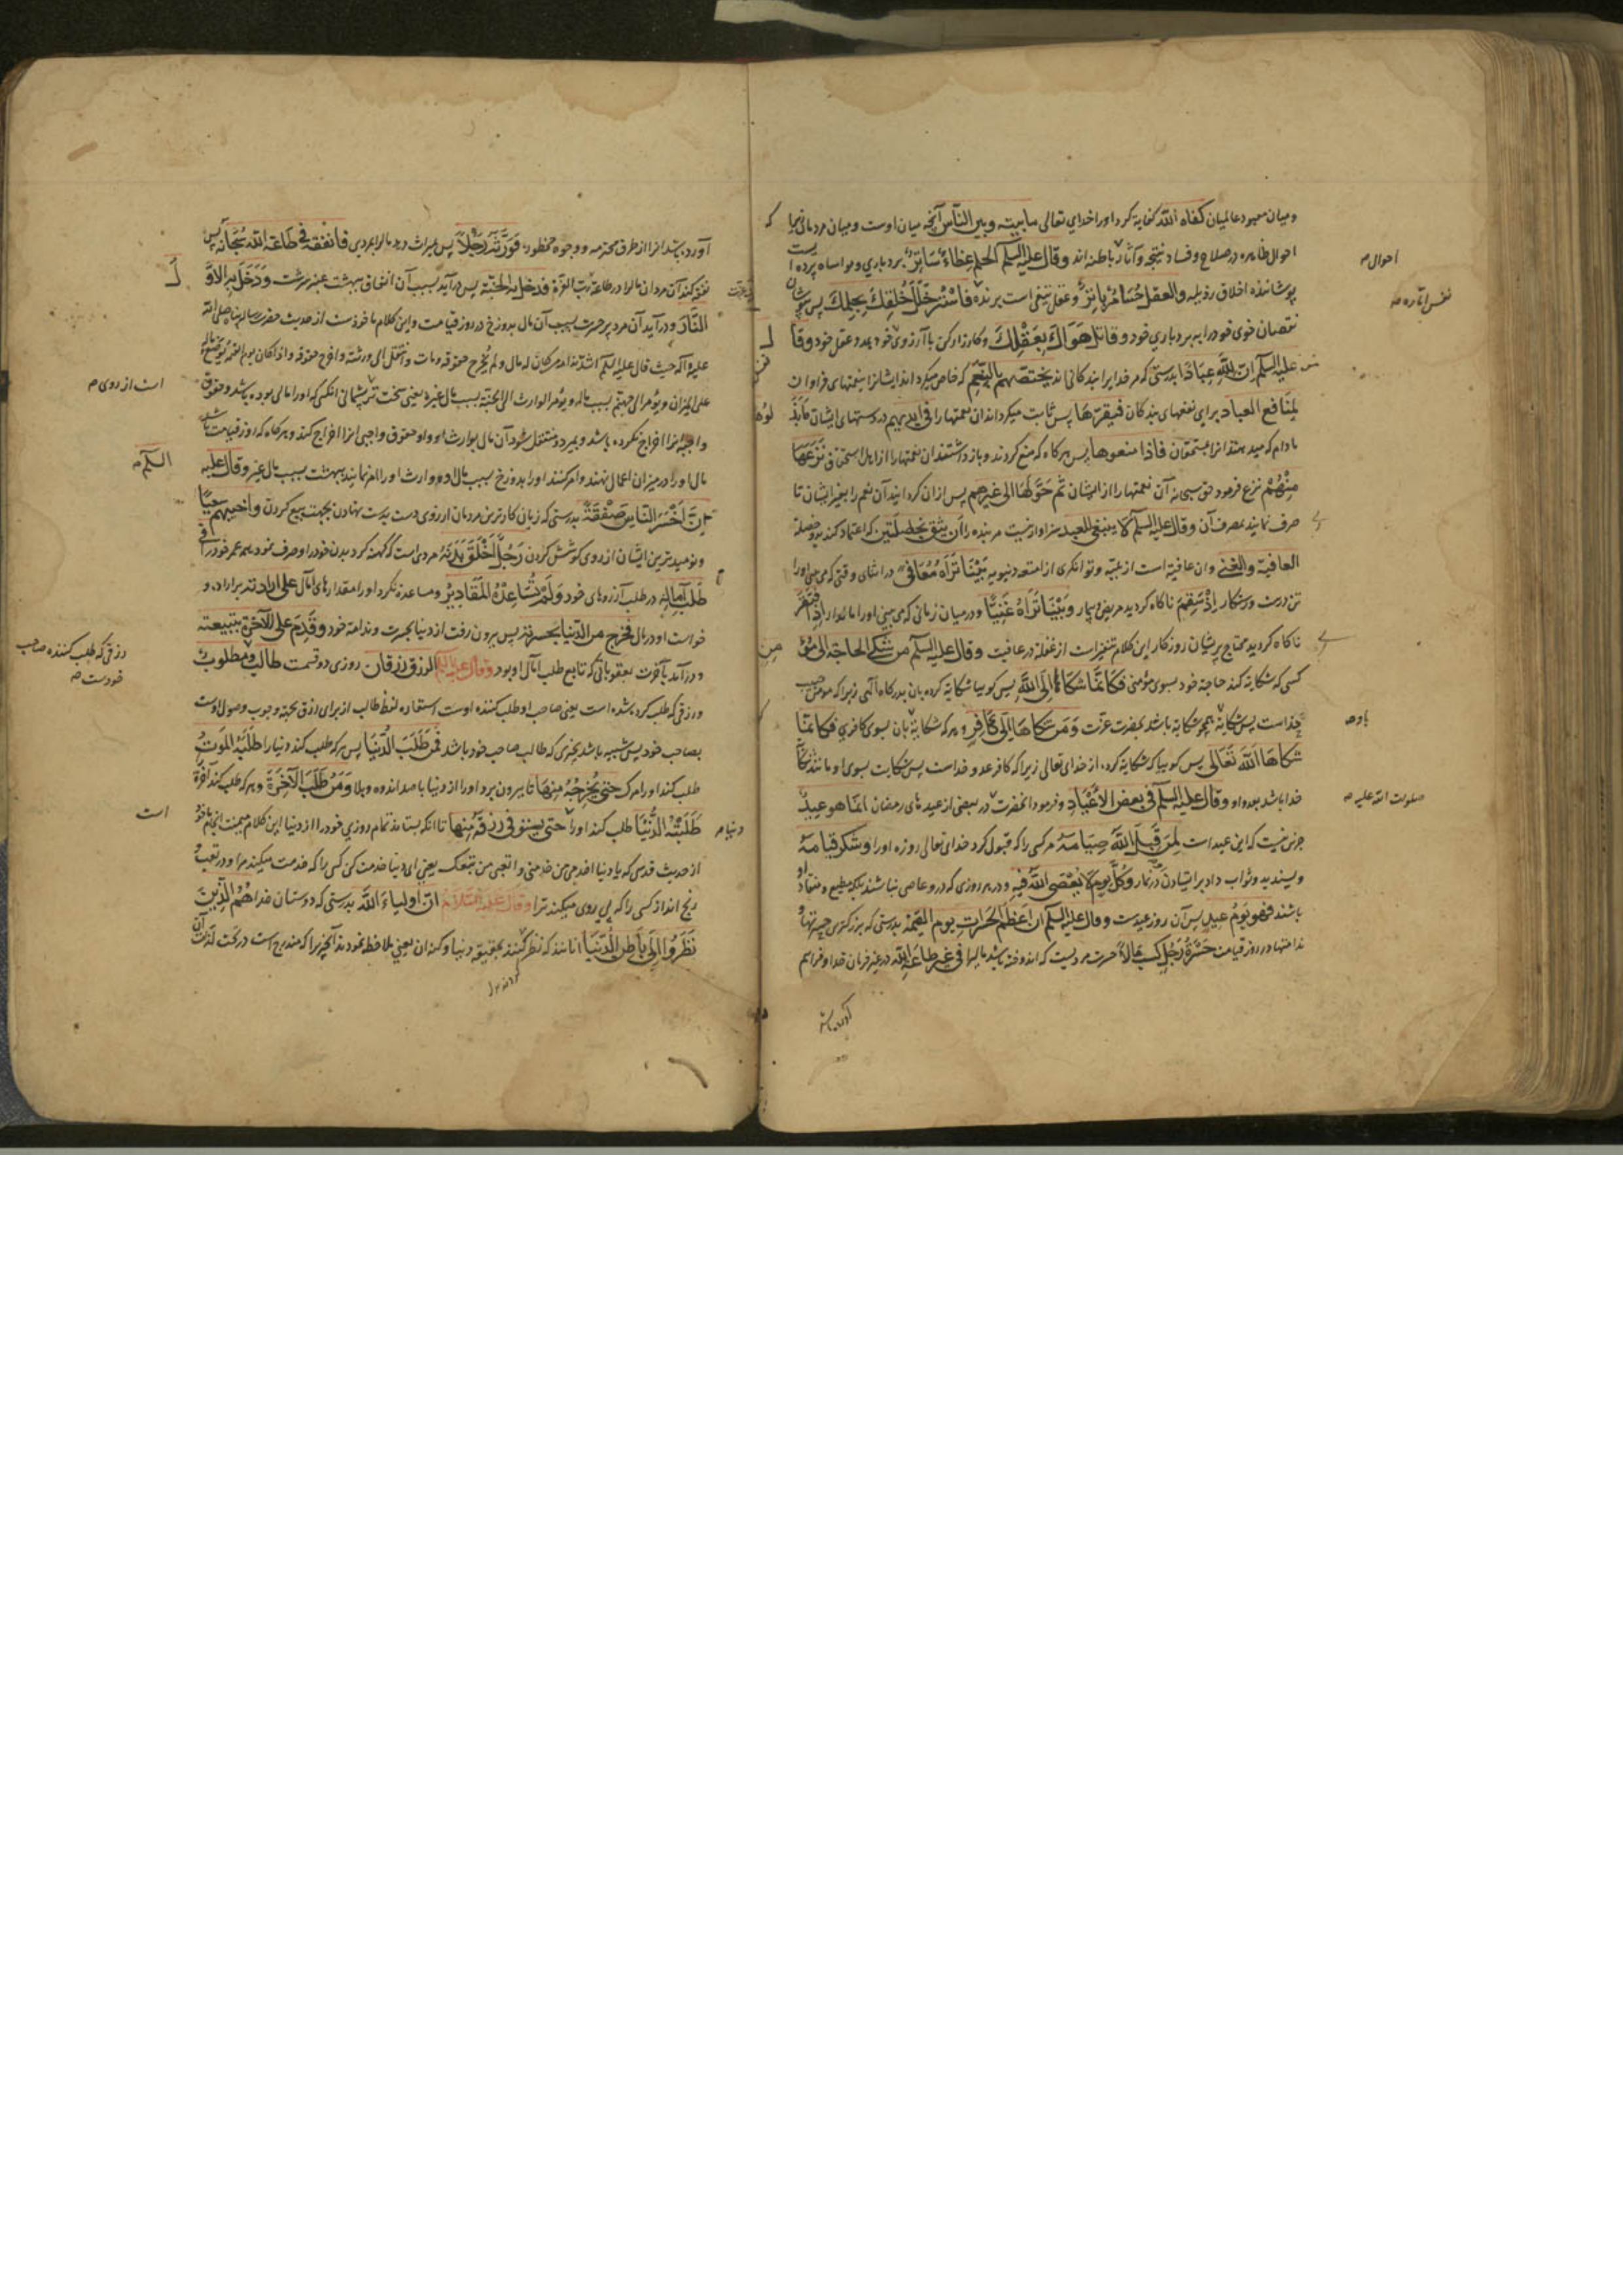 و میان معبود عالمیان کفاه الله کفایة کرد او را خدای تعالی ما بینه و بین الناس آنچه میان اوست و میان مردمان
احوال ظاهره در صلاح و فساد نتیجه و آثار باطنه اند وقال علیه السلم الحلم غطاء ساتر بردباری
پوشاننده اخلاق رذیله والعقل حسام باتر و عقل تیغی است برنده فاستر خلل خلقك بحلمك پس
نقصان خوی خود را به بردباری خود وقاتل هواك بعقلك و کارزار کن با آرزوی خود بمدد عقل خود وقا
علیه السلم ان لله عبادا بدرستی که مر خدایرا بندگانی اند یختصهم بالنعم که خاص میکرداند ایشانرا بنعمتهای فراوان
لمنافع العباد برای نفعهای بندکان فیقرها پس ثابت میکرداند آن نعمتها را فی ایدیهم در دستهای ایشان ما بذ
مادام که میدهند انرا بمستحقان فاذا منعوها پس هرکاه که منع کردند و باز داشتند آن نعمتها را از اهل استحقاق نزعها
منهم نزع فرمود حق سبحانه آن نعمتها را از ایشان ثم حولها الی غیرهم پس از ان کردانید آن نعم را بغیر ایشان تا
صرف نمایند بمصرف آن وقال علیه السلم لا ینبغی للعبد سزاوار نیست مر بنده را ان یثق بخصلتین که اعتماد کند بدو خصلة
العافیة والغنی و ان عافیة است از بلیه و توانکری از امتعه دنیویه بینا تراه معافی در اثنای وقتی که می بینی او را
تن درست و رستکار اذ سقم ناکاه کردید مریض و بیمار وبینا تراه غنیا و در میان زمانی که می بینی او را مالدار اذ افتقر
ناکاه کردید محتاج پریشان روزکار این کلام تنفیر است از غفلة در عافیت وقال علیه السلم من شکی الحاجة الی مؤ
کسی که شکایة کند حاجة خود بسوی مؤمنی فکانما شکاها الی الله پس کوییا شکایة کرده بان بدرکاه الهی زیرا که مؤمن حبیب
خداست پس شکایة بحضرت عزت ومن شکاها الی کافر و هر که شکایة بان بسوی کافری فکانما
شکاها الله تعالی پس کوییا که شکایة کرد از خدای تعالی زیرا که کافر عدو خداست پس شکایت بسوی او مانند
خدا باشد بعدو او وقال علیه السلم فی بعض الاعیاد و فرمود انحضرت در بعضی از عیدهای رمضان انما هو عید
جزین نیست که این عید است لمن قبل الله صیامه مر کسی را که قبول کرد خدای تعالی روزه او را وشکر قیامه
و پسندید و ثواب داد بر ایستادن در نماز وکل یوم لا یعصی الله فیه و در هر روزی که در و عاصی نباشند بلکه مطیع و منقاد
باشند فهو یوم عید پس آن روز عیدست وقال علیه السلم ان اعظم الحسرات یوم القیمة بدرستی که بزرکترین حسرتها و
ندامتها در روز قیامت حسرة رجل کسب مالا حسرت مردیست که اندوخته باشد مالی را فی غیر طاعة الله در غیر فرمان خدا و فراهم
احوال م
نفس اماره صح
با و صح
صلوات الله علیه صح
آورده باشد انرا از طرق محرمه و وجوه محظوره فورثه رجلا پس میراث دهد مال را بمردی فانفقه فی طاعة الله سبحانه پس
نفقه کند آن مرد ان مال را در طاعة رب العزة فدخل به الجنة پس در آید بسبب آن انفاق ببهشت عنبر سرشت ودخل به الاو
النار و در آید آن مرد پر حسرت بسبب آن مال بدوزخ در روز قیامت و این کلام ماخوذست از حدیث حضرت رسالت پناه صلی الله
علیه و آله حیث قال علیه السلم
علی المیزان و یؤمر الی جهنم بسبب ماله و یؤمر الوارث الی الجنة بسبب مال غیره یعنی سخت تر پشمانی انکسی که او را مالی بوده باشد و حقوق
واجبه انرا اخراج نکرده باشد و بمیرد و منتقل شود آن مال بوارث او و او حقوق واجبی انرا اخراج کند و هرکاه که روز قیامت باشد
مال او را در میزان اعمال نهند و امر کنند او را بدوزخ بسبب مال او و وارث او را امر نمایند ببهشت بسبب مال غیر وقال علیه
ان اخسر الناس صفقة بدرستی که زیان کارترین مردمان از روی دست بدست نهادن بجهت بیع کردن واخیبهم سعیا
و نومیدترین ایشان از روی کوشش کردن رجل اخلق بدنه مردی است که کهنه کرد بدن خود را و صرف نمود همه عمر خود را فی
طلب آماله در طلب آرزوهای خود ولم تساعده المقادیر و مساعده نکرد او را مقدارهای آمال علی ارادته بر اراده و
خواست او در مال فخرج من الدنیا بحسرته پس بیرون رفت از دنیا بحسرت و ندامة خود وقدم علی الآخرة بتبعته
و در آمد بآخرت بعقوباتی که تابع طلب آمال او بود وقال علیه السلم الرزق رزقان روزی دو قسمت طالب ومطلوب
و رزقی که طلب کرده شده است یعنی صاحب او طلب کننده اوست استعاره لفظ طالب از برای رزق بجهة وجوب وصول اوست
بصاحب خود پس شبیه باشد بچیزی که طالب صاحب خود باشد فمن طلب الدنیا پس هر که طلب کند دنیا را طلبه الموت
طلب کند او را مرک حتی یخرجه منها تا بیرون برد او را از دنیا با صد اندوه و بلا ومن طلب الآخرة و هر که طلب کند آخرة
طلبته الدنیا طلب کند او را حتی یستوفی رزقه منها تا انکه بستاند تمام روزی خود را از دنیا این کلام
از حدیث قدسی که یا دنیا اخدمی من خدمنی و اتعبی من خدمک یعنی ای دنیا خدمت کن کسی را که خدمت میکند مرا و در تعب
رنج انداز کسی را که پی روی میکند ترا وقال علیه السلام ان اولیاء الله بدرستی که دوستان خدا هم الذین
نظروا الی باطن الدنیا انانند که نظر کنند بحقیقة دنیا و کنه ان یعنی ملاحظه نمودند آنچیز را که مندرج است در تحت لذات
است از روی م
السلم م
رزقی که طلب کننده صاحب
خودست صح
دنیا م
است